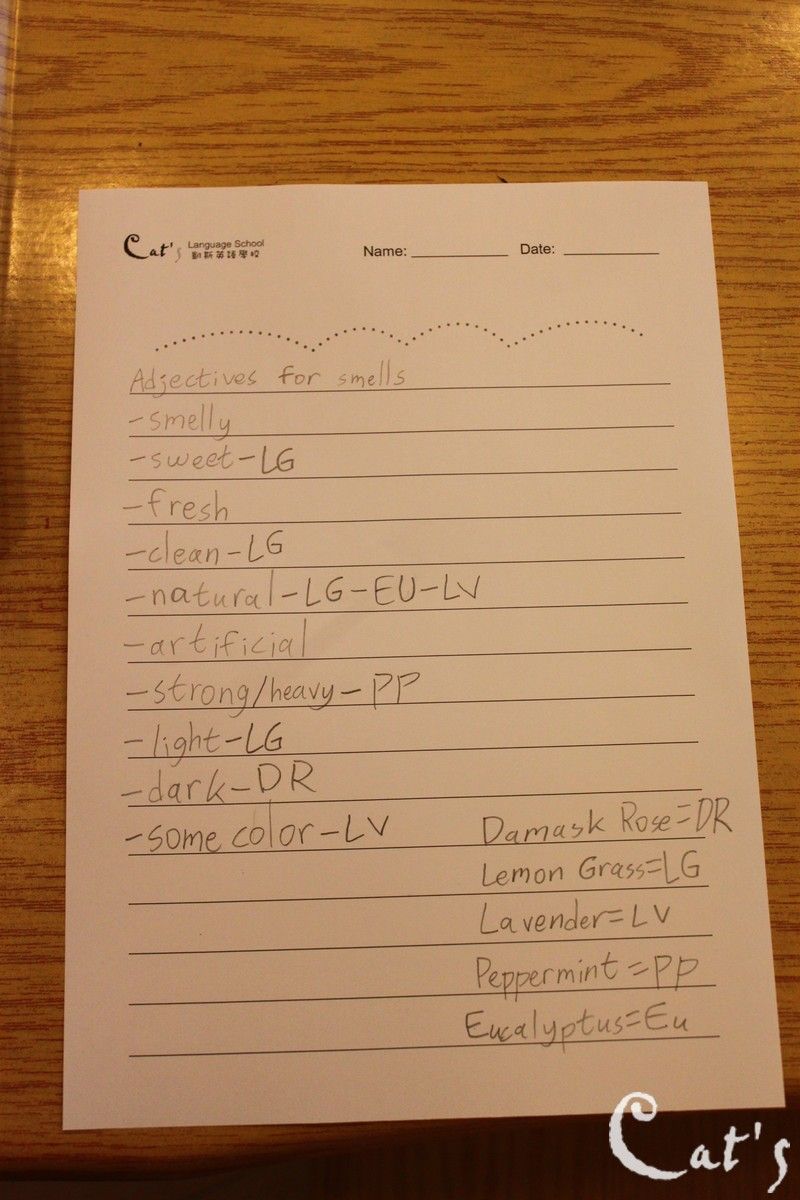 Cat's Language School
凱斯英語學校
Name: Date:
Adjectives for smells
-smelly
-sweet-LG
-fresh
-clean-LG
-natural-LG-EU-LV
-artificial
-strong/heavy-PP
-light-LG
-dark-DR
-some color-LV
Damask Rose=DR
Lemon Grass=LG
Lavender=LV
Peppermint=PP
Eucalyptus=Eu
Cat's